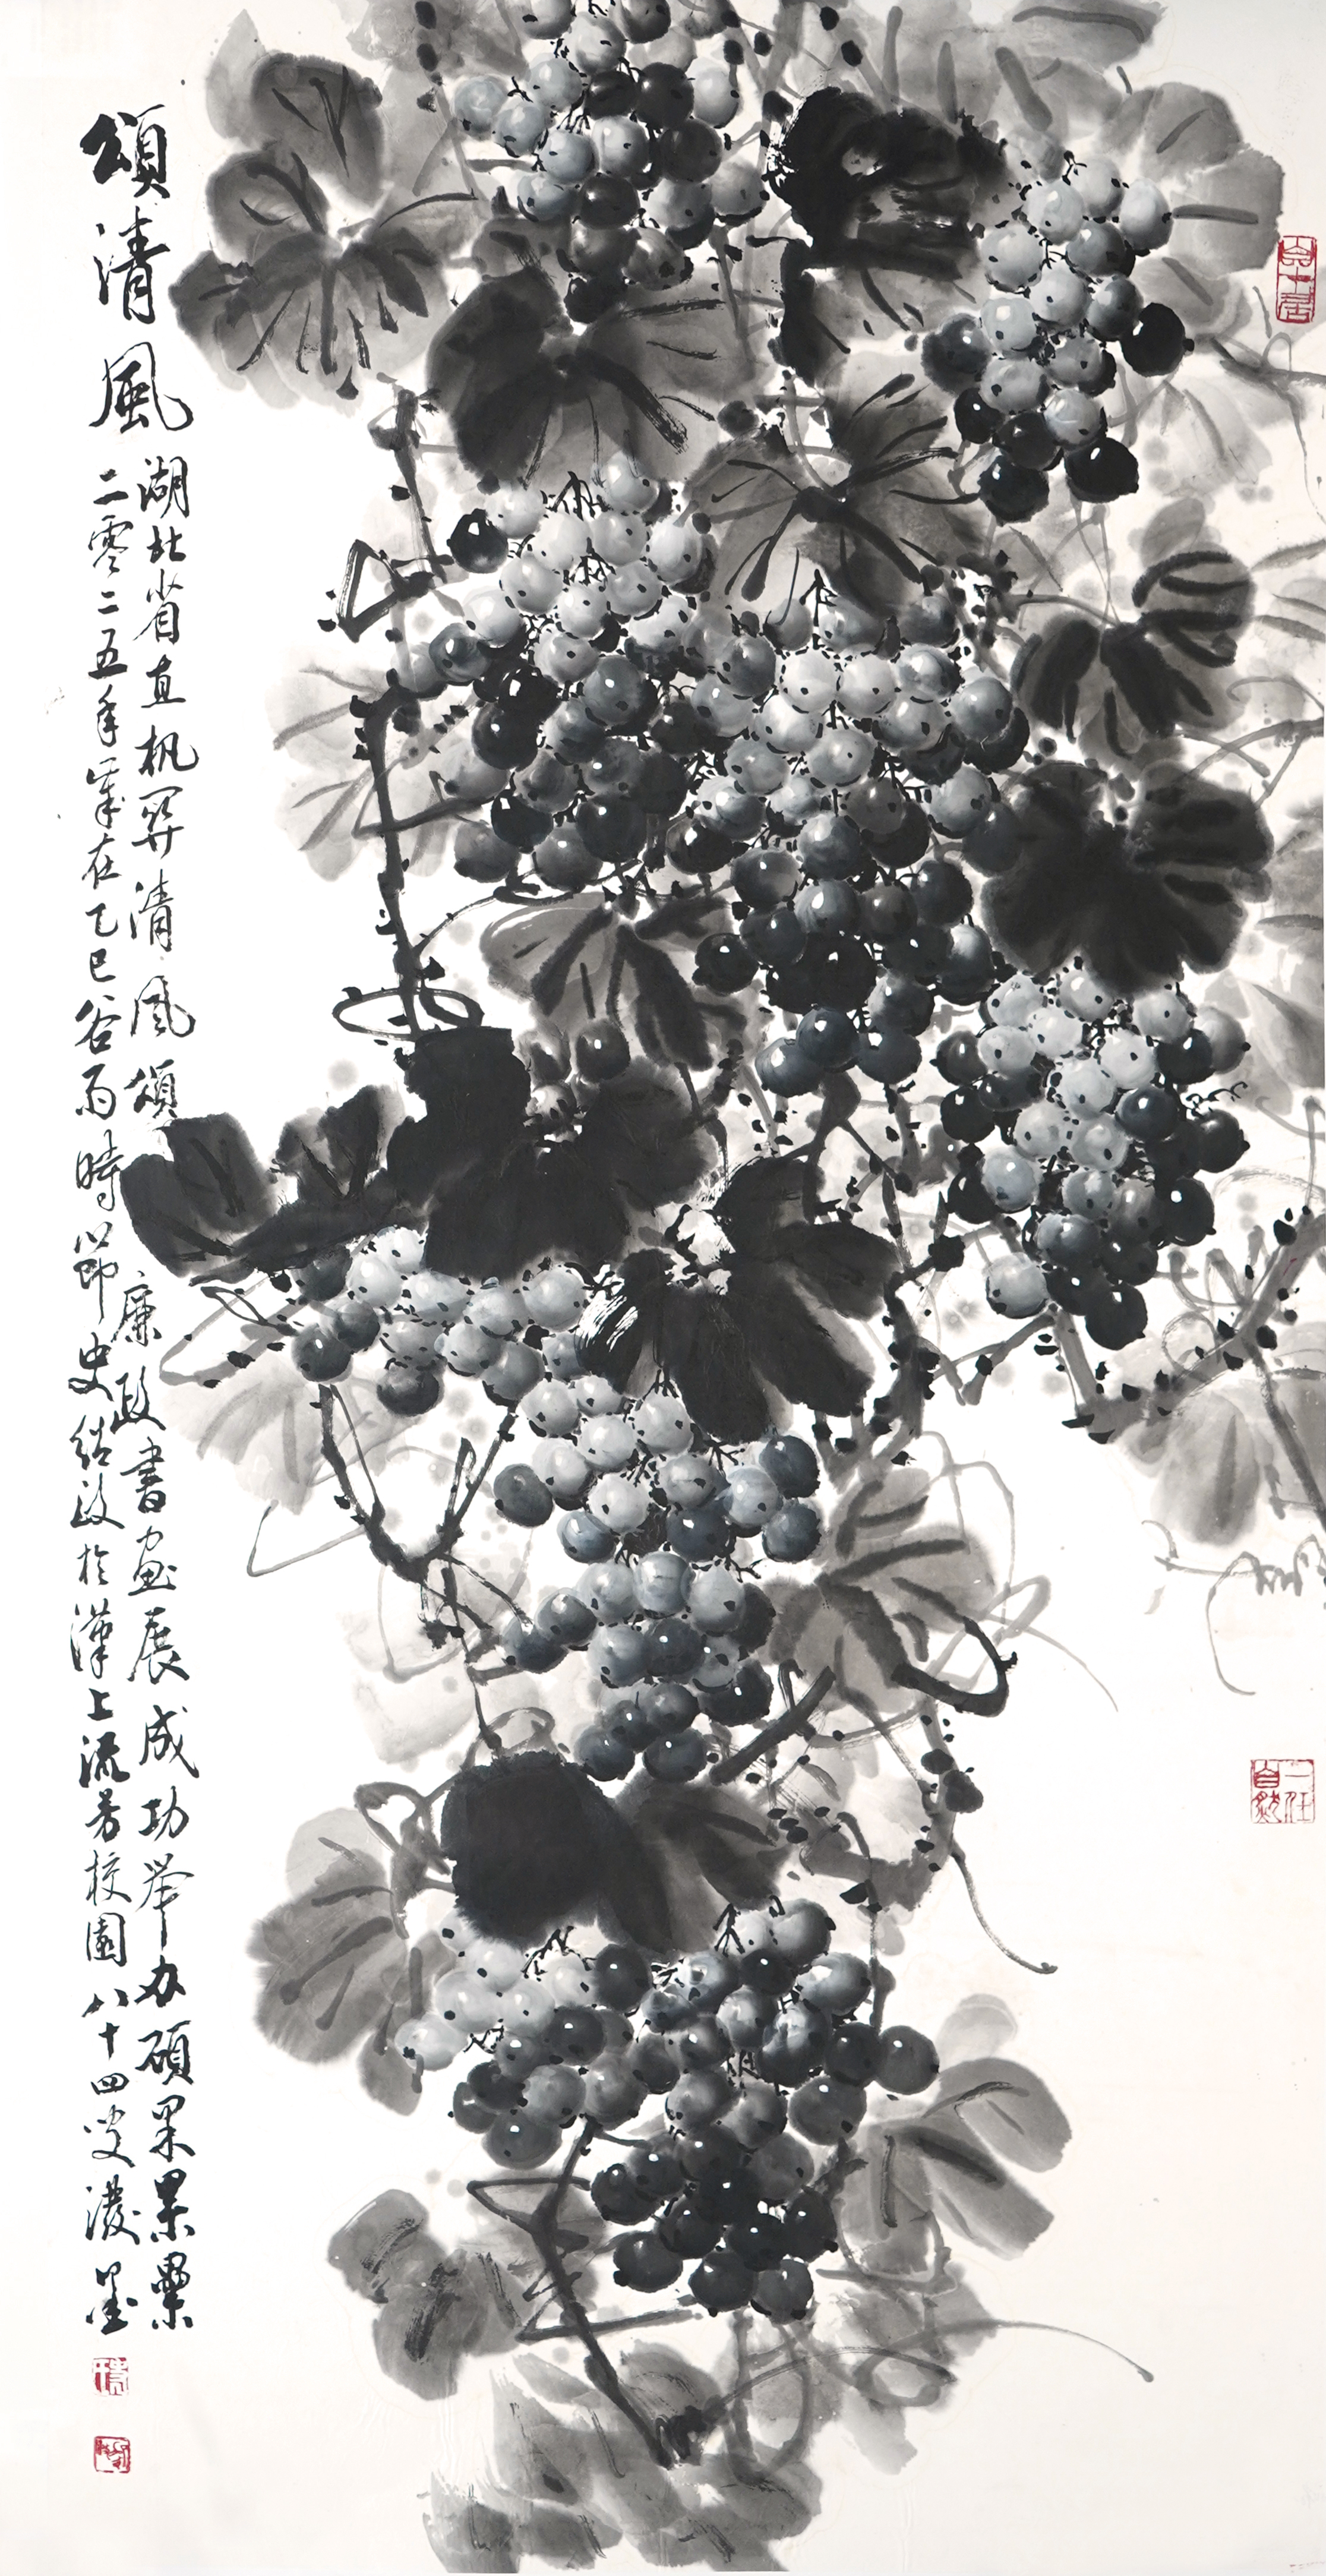 頌清風
湖北省直机関清風頌廉政書画展成功举办硕果累累
二零二五年歲在乙巳谷雨時節史紹政於漢上流芳校園八十四叟潑墨
一任自然